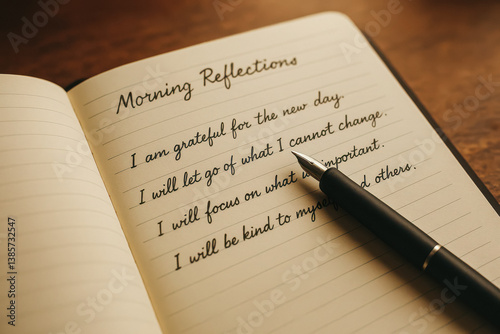 Morning Reflections
I am grateful for the new day.
I will let go of what I cannot change.
I will focus on what is important.
I will be kind to myself and others.
Adobe Stock
#1385732547